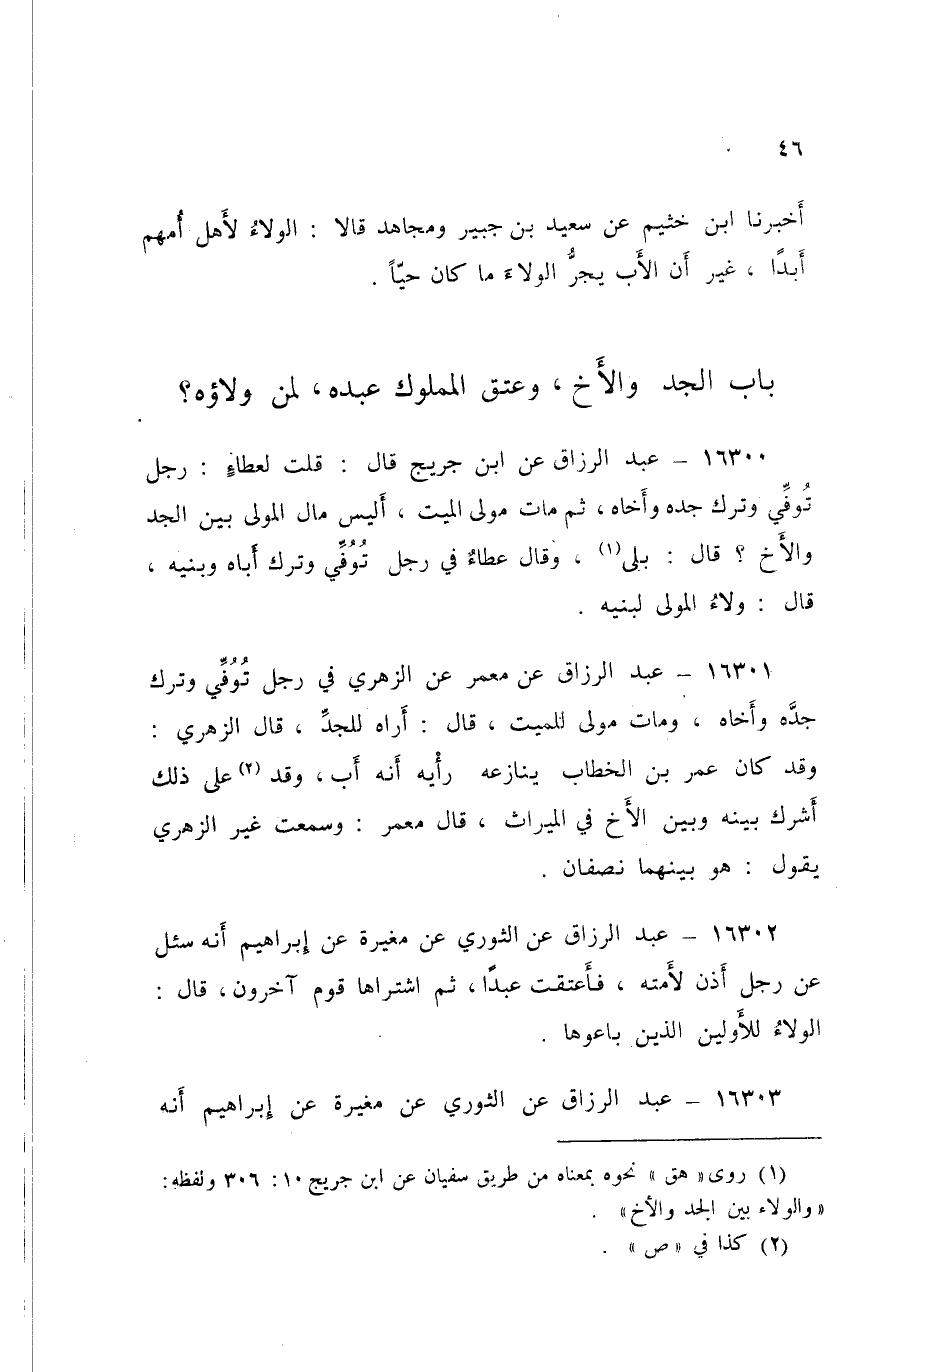 ٤٦
أَخبرنا ابن خثيم عن سعيد بن جبير ومجاهد قالا : الولاءُ لأَهل أُمهم
أَبدًا ، غير أَن الأَب يجرُّ الولاءَ ما كان حيّاً .
باب الجد والأَخ ، وعتق المملوك عبده ، لمن ولاؤه؟
١٦٣٠٠ – عبد الرزاق عن ابن جريج قال : قلت لعطاءٍ : رجل
تُوفِّي وترك جده وأَخاه ، ثم مات مولى الميت ، أَليس مال المولى بين الجد
والأَخ ؟ قال : بلى(١) ، وقال عطاءٌ في رجل تُوُفِّي وترك أَباه وبنيه ،
قال : ولاءُ المولى لبنيه .
١٦٣٠١ – عبد الرزاق عن معمر عن الزهري في رجل تُوُفِّي وترك
جدَّه وأَخاه ، ومات مولى للميت ، قال : أَراه للجدِّ ، قال الزهري :
وقد كان عمر بن الخطاب ينازعه رأْيه أَنه أَب ، وقد (٢) على ذلك
أَشرك بينه وبين الأَخ في الميراث ، قال معمر : وسمعت غير الزهري
يقول : هو بينهما نصفان .
١٦٣٠٢ – عبد الرزاق عن الثوري عن مغيرة عن إِبراهيم أَنه سئل
عن رجل أَذن لأَمته ، فأَعتقت عبدًا ، ثم اشتراها قوم آخرون ، قال :
الولاءُ للأَولين الذين باعوها .
١٦٣٠٣ – عبد الرزاق عن الثوري عن مغيرة عن إِبراهيم أَنه
(١) روى « هق » نحوه بمعناه من طريق سفيان عن ابن جريج ١٠: ٣٠٦ ولفظه :
« والولاء بين الجد والأخ » .
(٢) كذا في « ص » .